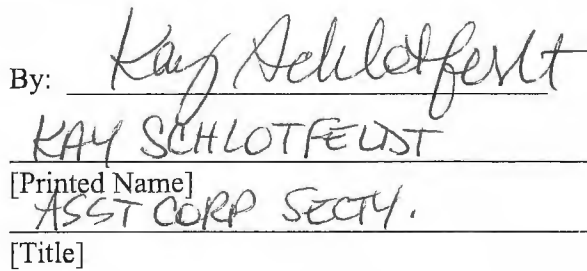 By: Kay Schlotfeldt
KAY SCHLOTFELDT
[Printed Name]
ASST CORP SECTY.
[Title]